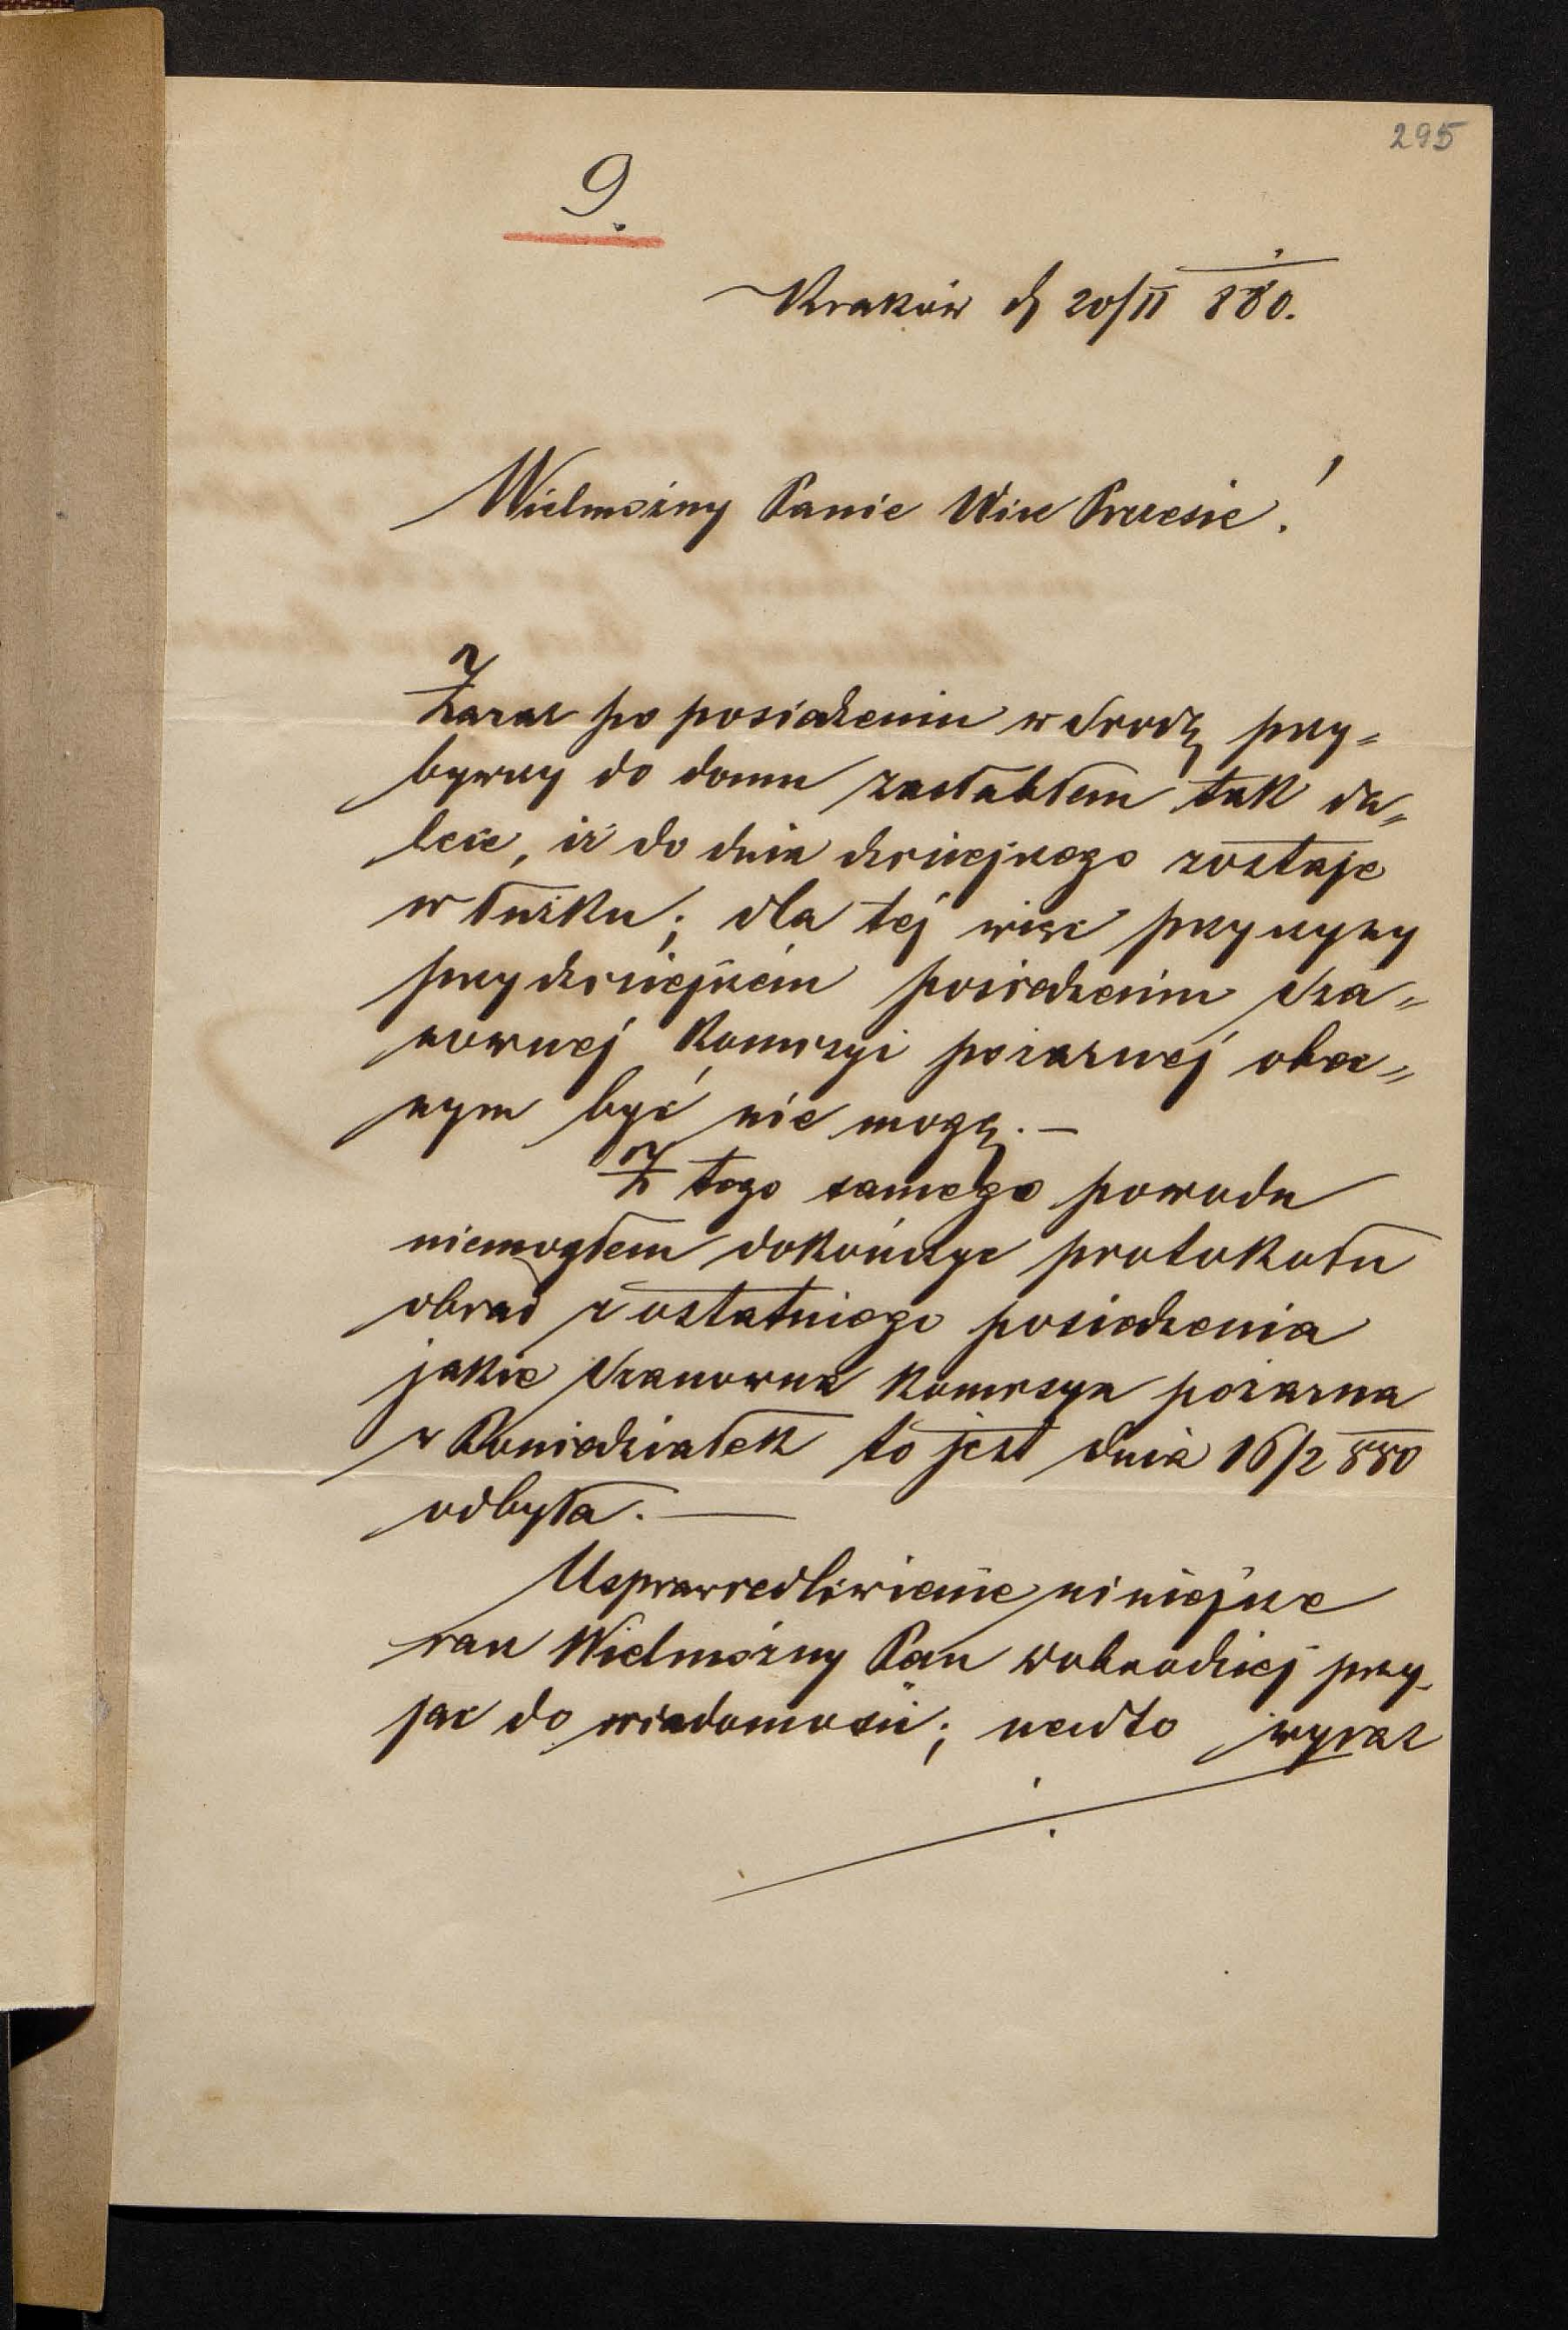 295
9.
Kraków d 20/II 880.
Wielmożny Panie Wice Prezesie!
Zaraz po posiedzeniu w Srodę przy=
bywszy do domu zasłabłem tak da=
lece, iż do dnia dzisiejszego zostaję
w łużku; dla tej więc przyczyny
przy dzisiejszém posiedzeniu Sza=
nownej Komisyi pożarnej obec=
nym być nie mogę. —
Z tego samego powodu
niemogłem dokończyc protokołu
obrad z ostatniego posiedzenia
jakie Szanowna Komisya pożarna
w Poniedziałek to jest dnia 16/2 880
odbyła. —
Usprawiedliwienie niniejsze
racz Wielmożny Pan Dobrodziej przy-
jąc do wiadomosci; nadto wyraz